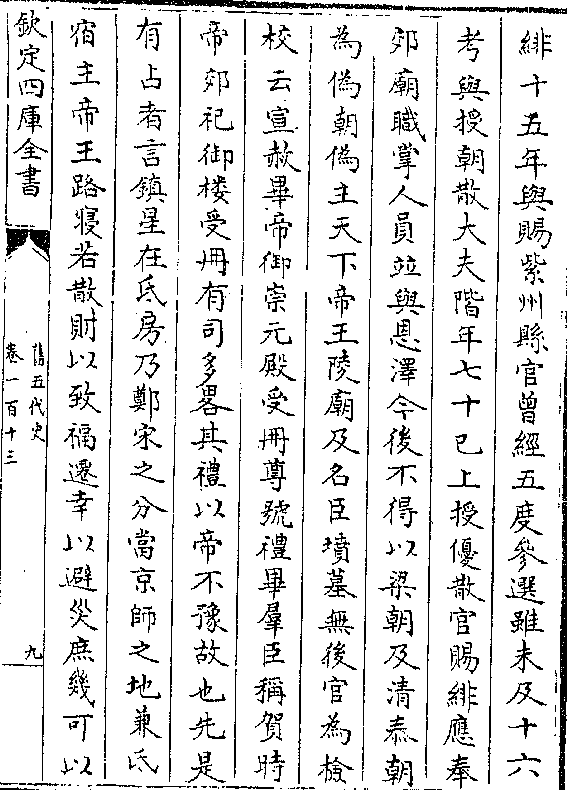 緋十五年與賜紫州縣官曾經五度參選雖未及十六
考與授朝散大夫階年七十已上授優散官賜緋應奉
郊廟職掌人員竝與恩澤今後不得以梁朝及清泰朝
為偽朝偽主天下帝王陵廟及名臣墳墓無後官為檢
校云宣赦畢帝御崇元殿受冊尊號禮畢羣臣稱賀時
帝郊祀御楼受冊有司多畧其禮以帝不豫故也先是
有占者言鎮星在氐房乃鄭宋之分當京師之地兼氐
宿主帝王路寢若散財以致福遷幸以避災庶幾可以
欽定四庫全書
舊五代史
卷一百十三
九